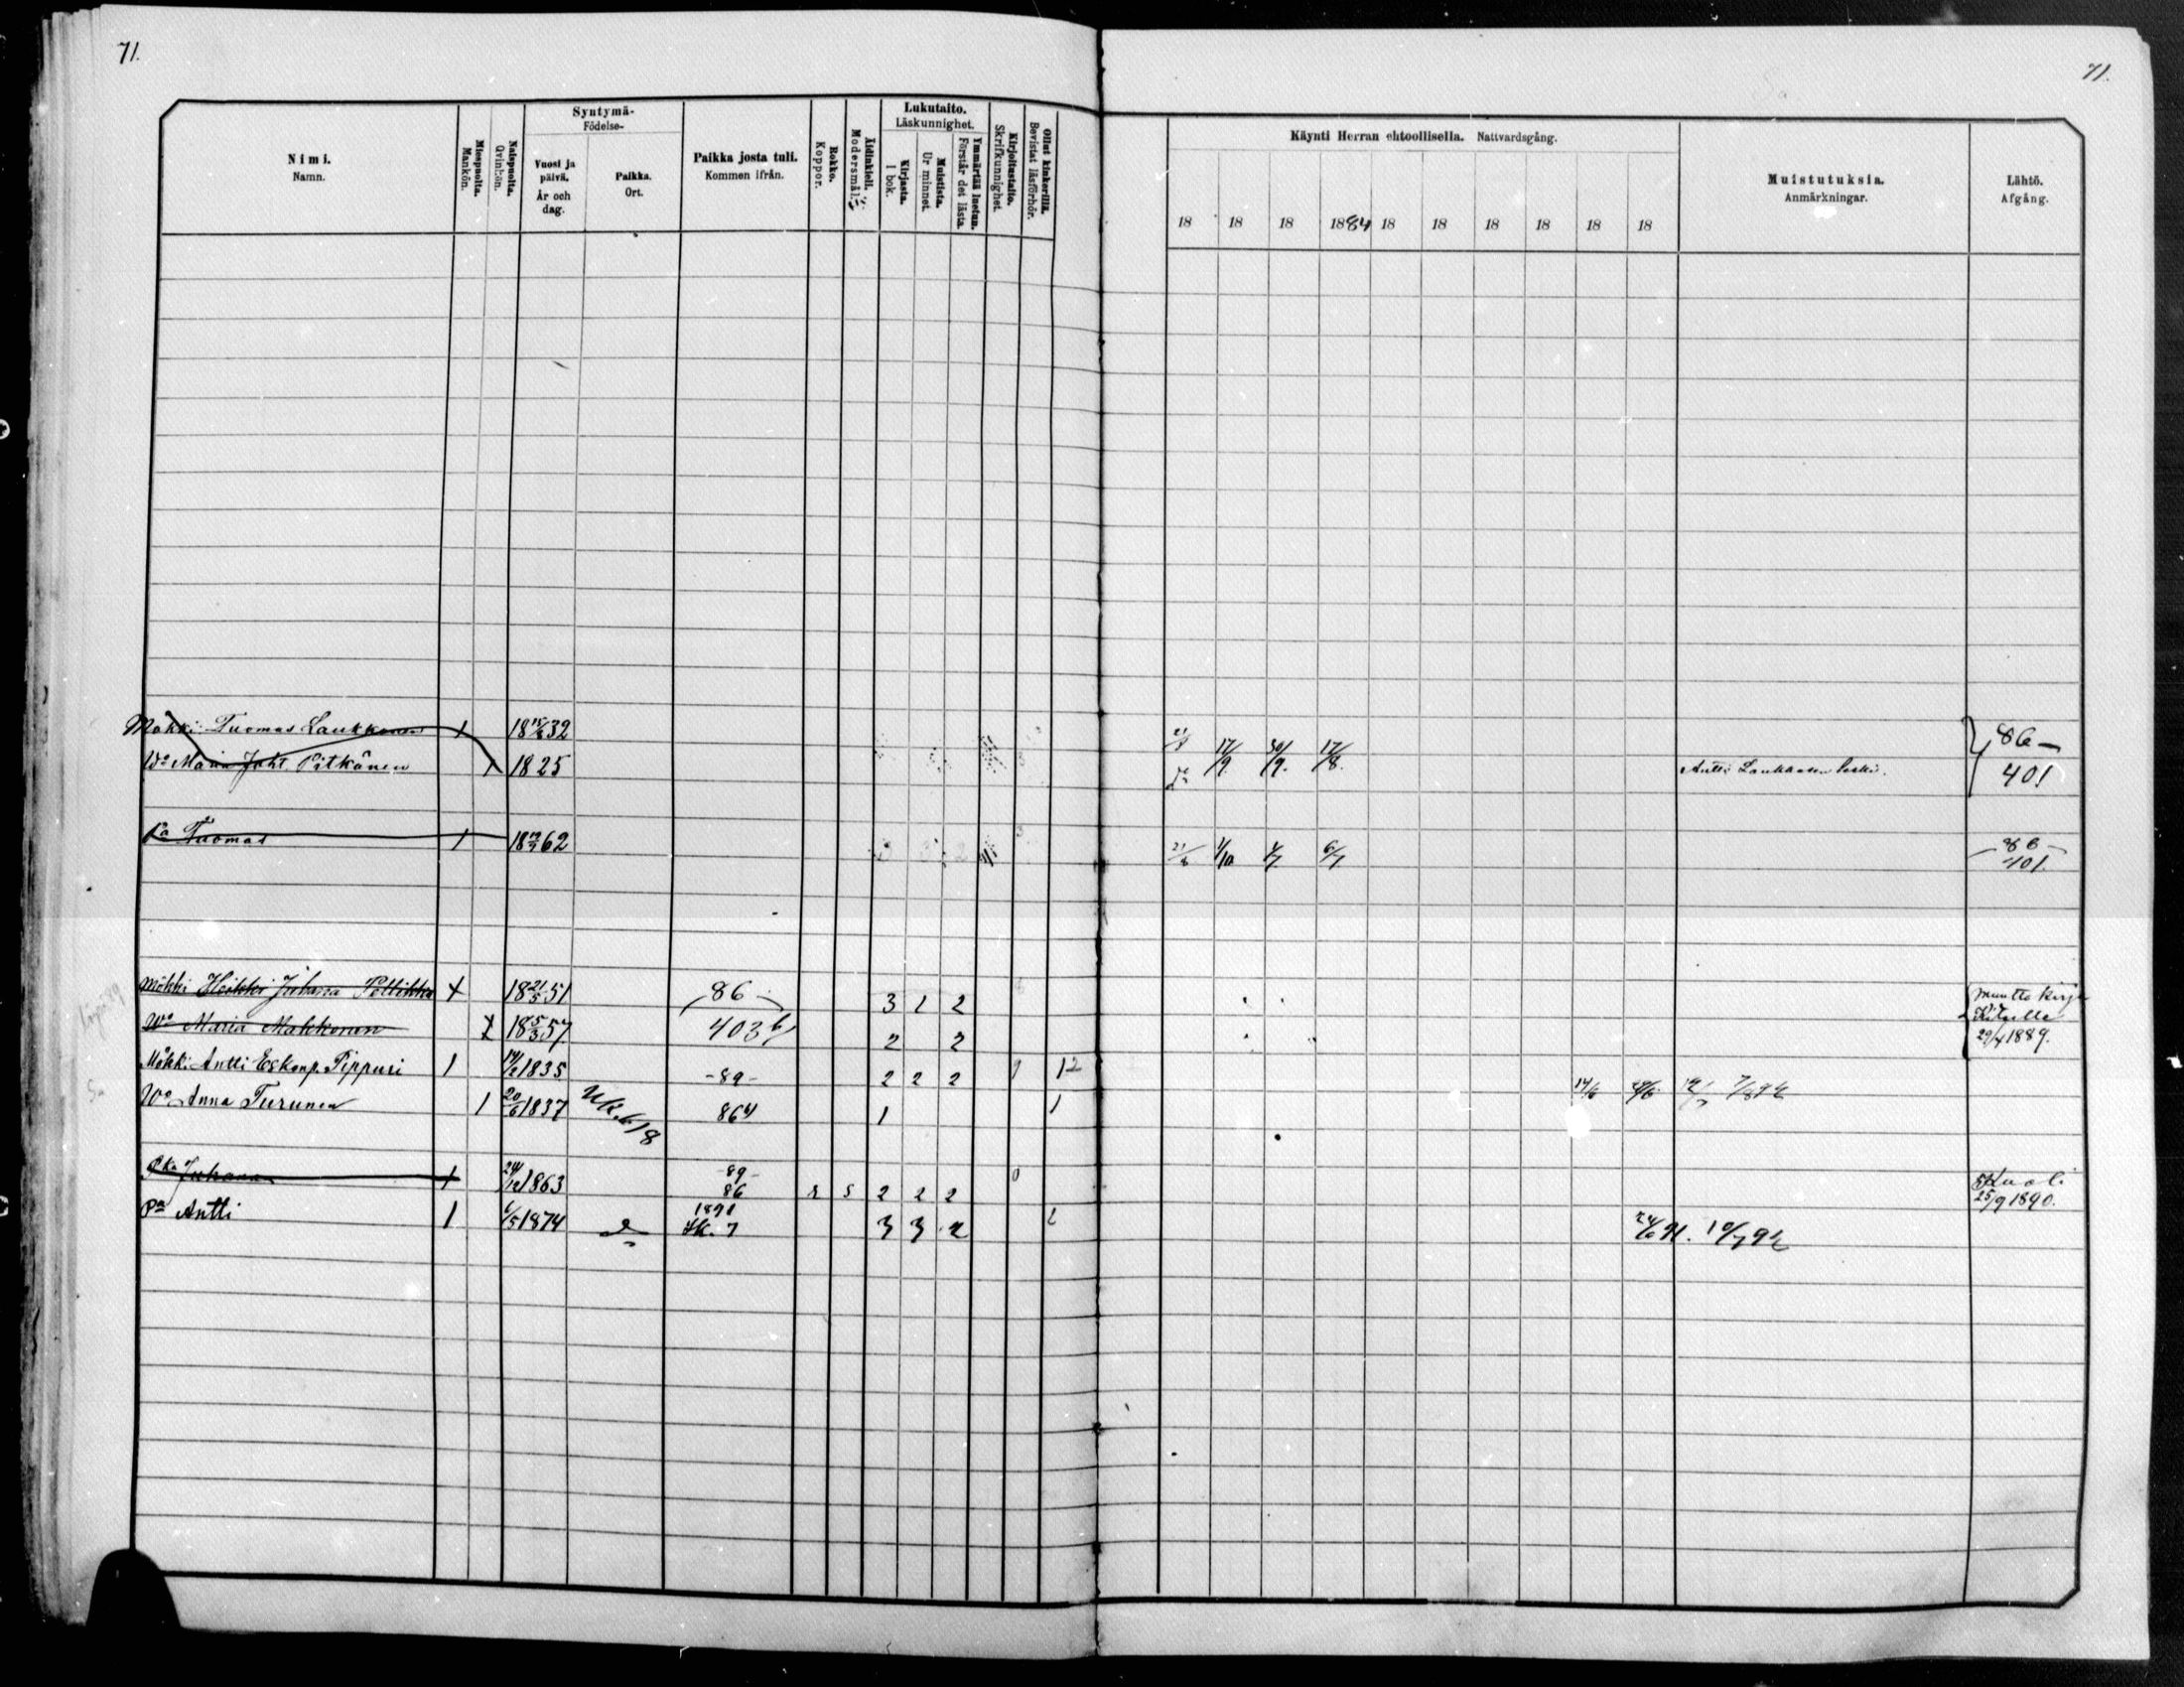 71.
71.
Nimi.
Namn.
Miespuolta.
Mankön.
Naispuolta.
Qvinkön.
Syntymä-
Födelse-
Vuosi ja päivä.
År och dag.
Paikka.
Ort.
Paikka josta tuli.
Kommen ifrån.
Rokko.
Koppor.
Äidinkieli.
Modersmål.
Lukutaito.
Läskunnighet.
Kirjasta.
I bok.
Muistista.
Ur minnet.
Ymmärtää luetun.
Förstår det lästa.
Kirjoitustaito.
Skrifkunnighet.
Ollut kinkerillä.
Bevistat läsförhör.
Käynti Herran ehtoollisella. Nattvardsgång.
18 18 18 1884 18 18 18 18 18 18
Muistutuksia.
Anmärkningar.
Lähtö.
Afgång.
Mökki Tuomas Laukkanen 1 18 15/6 32 21/8 17/9 30/9 17/8 86-
Wo Maria Juht. Pitkänen 1 1825 do Antti Laukkasen leski. 401
Pa Tuomas 1 18 62 3 3 2 21/8 1/10 6/7 86-
401.
Mökki Heikki Juhana Pöllikkä 1 18 21/5 51 86 3 1 2 Muutto kirja
Wo Maria Makkonen 1 18 5/3 57 403 b 2 2 Kiteelle
29/4 1889.
Mökki Antti Eskonp. Pippuri 1 14/2 1835 -89- 2 2 2 0 12
Wo Anna Turunen 1 20/6 1837 Uk. s. 18 864 1 1 14/6
Pka Juhana 1 24/12 1863 -89-
86 r s 2 2 2 0 Kuoli
25/9 1890.
Pa Antti 1 6/5 1874 1891
Lk. 7 3 3 2 91. 10/7 92